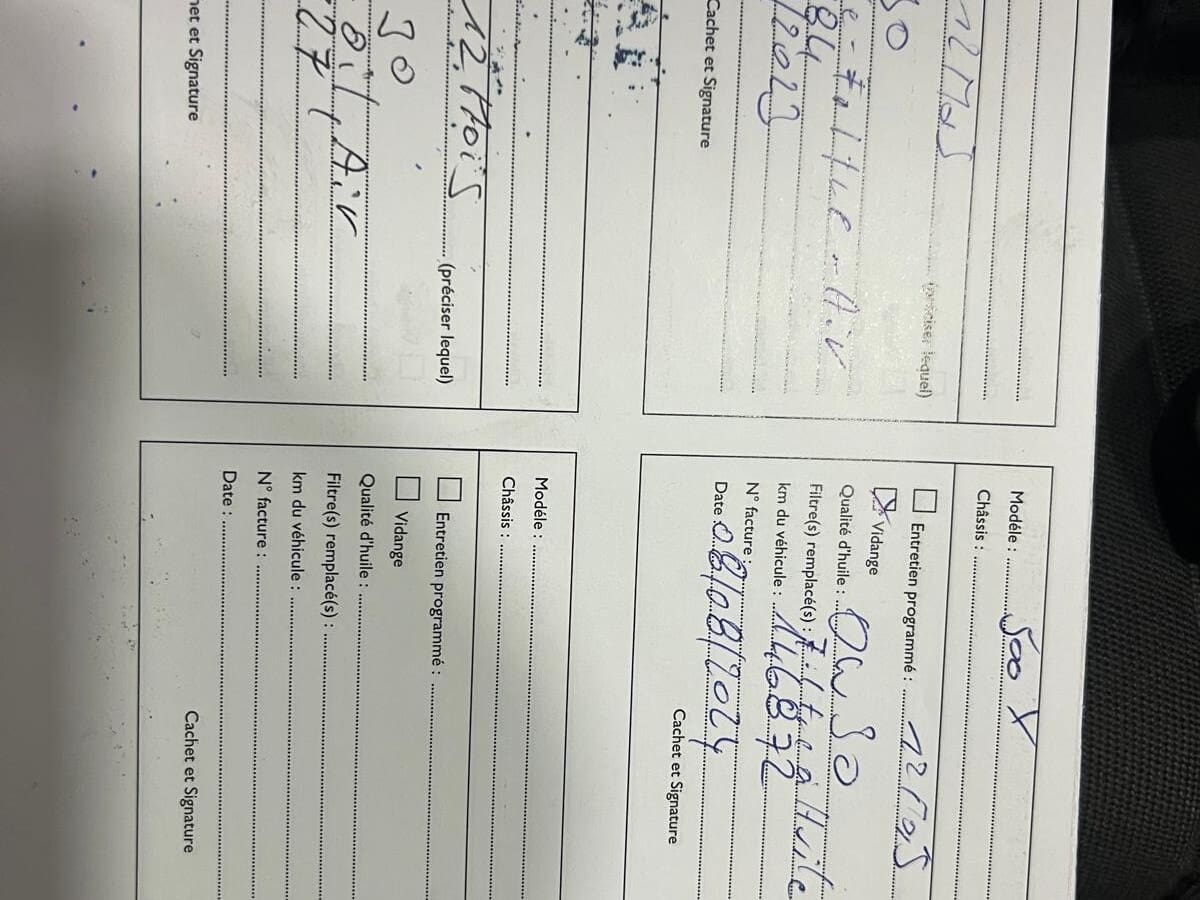 12 Mois
(préciser lequel)
30
e-Filtre-Air
84
/2023
Cachet et Signature
Modéle : 500 X
Châssis :
Entretien programmé : 12 Mois
Vidange
Qualité d'huile : 0W30
Filtre(s) remplacé(s) : Filtre à Huile
km du véhicule : 146872
N° facture :
Date 08/08/2024
Cachet et Signature
12 Mois
(préciser lequel)
30
oil, Air
27
et Signature
Modéle :
Châssis :
Entretien programmé :
Vidange
Qualité d'huile :
Filtre(s) remplacé(s) :
km du véhicule :
N° facture :
Date :
Cachet et Signature